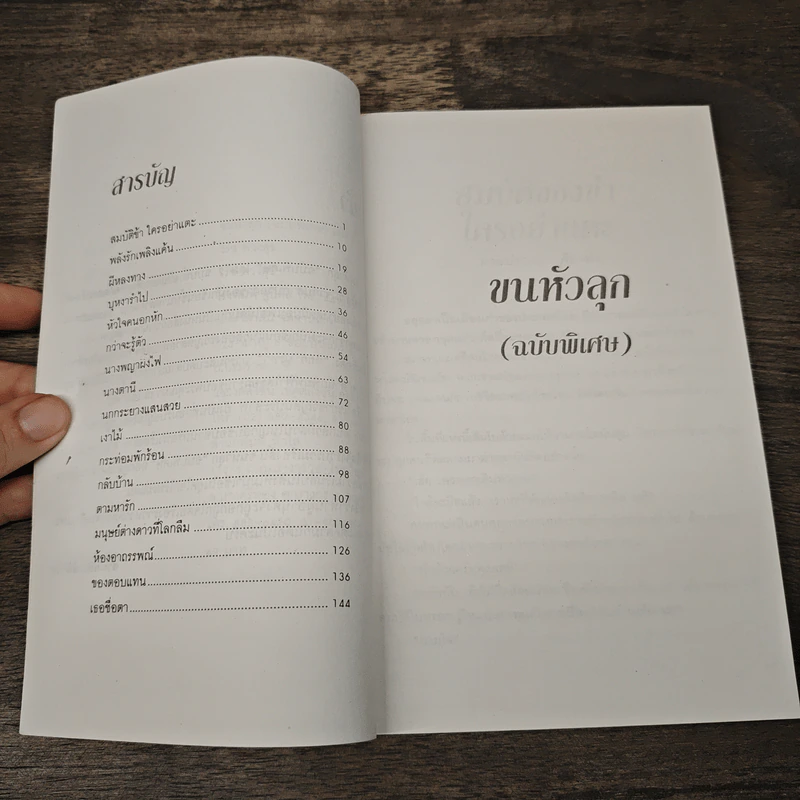 สารบัญ
สมบัติข้า ใครอย่าแตะ ........ 1
พลังรักเพลิงแค้น ........ 10
ผีหลงทาง ........ 19
บุหงารำไป ........ 28
หัวใจคนอกหัก ........ 36
กว่าจะรู้ตัว ........ 46
นางพญาผึ้งไฟ ........ 54
นางตานี ........ 63
นกกระยางแสนสวย ........ 72
เงาไม้ ........ 80
กระท่อมพักร้อน ........ 88
กลับบ้าน ........ 98
ตามหารัก ........ 107
มนุษย์ต่างดาวที่โลกลืม ........ 116
ห้องอาถรรพณ์ ........ 126
ของตอบแทน ........ 136
เธอชื่อดา ........ 144
ขนหัวลุก
(ฉบับพิเศษ)